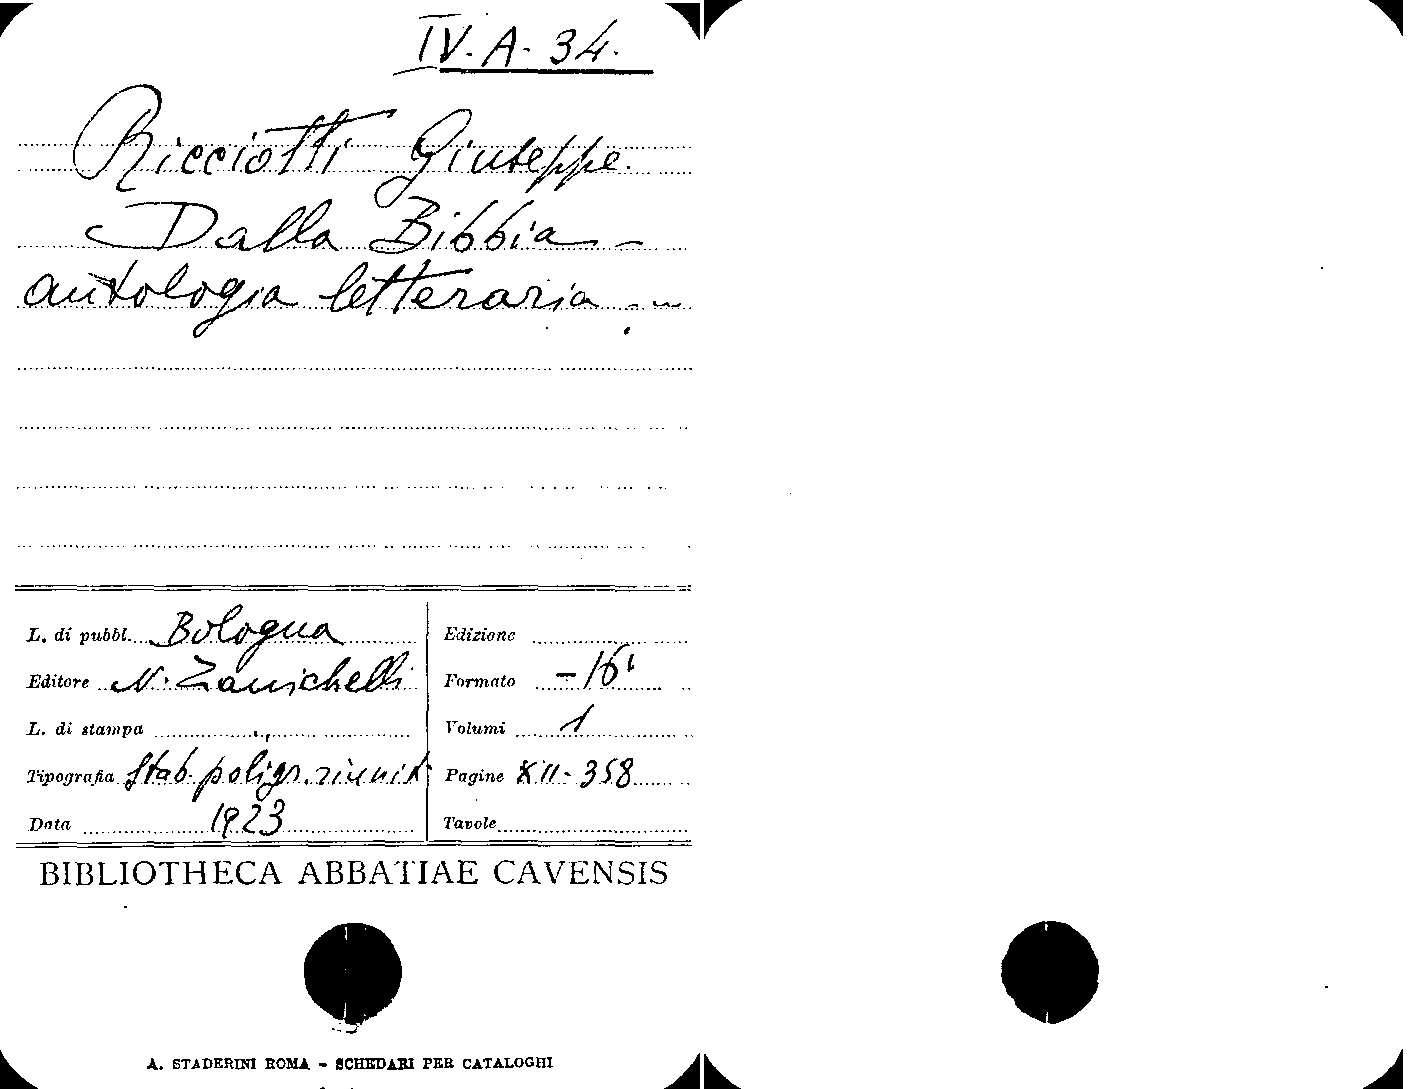 IV. A. 34.
Ricciotti Giuseppe.
Dalla Bibbia -
antologia letteraria. -
L. di pubbl. Bologna
Editore N. Zanichelli
L. di stampa ,,
Tipografia Stab. poligr. riunit.
Data 1923
Edizione
Formato -16°
Volumi 1
Pagine XII- 358
Tavole
BIBLIOTHECA ABBATIAE CAVENSIS
A. STADERINI ROMA - SCHEDARI PER CATALOGHI